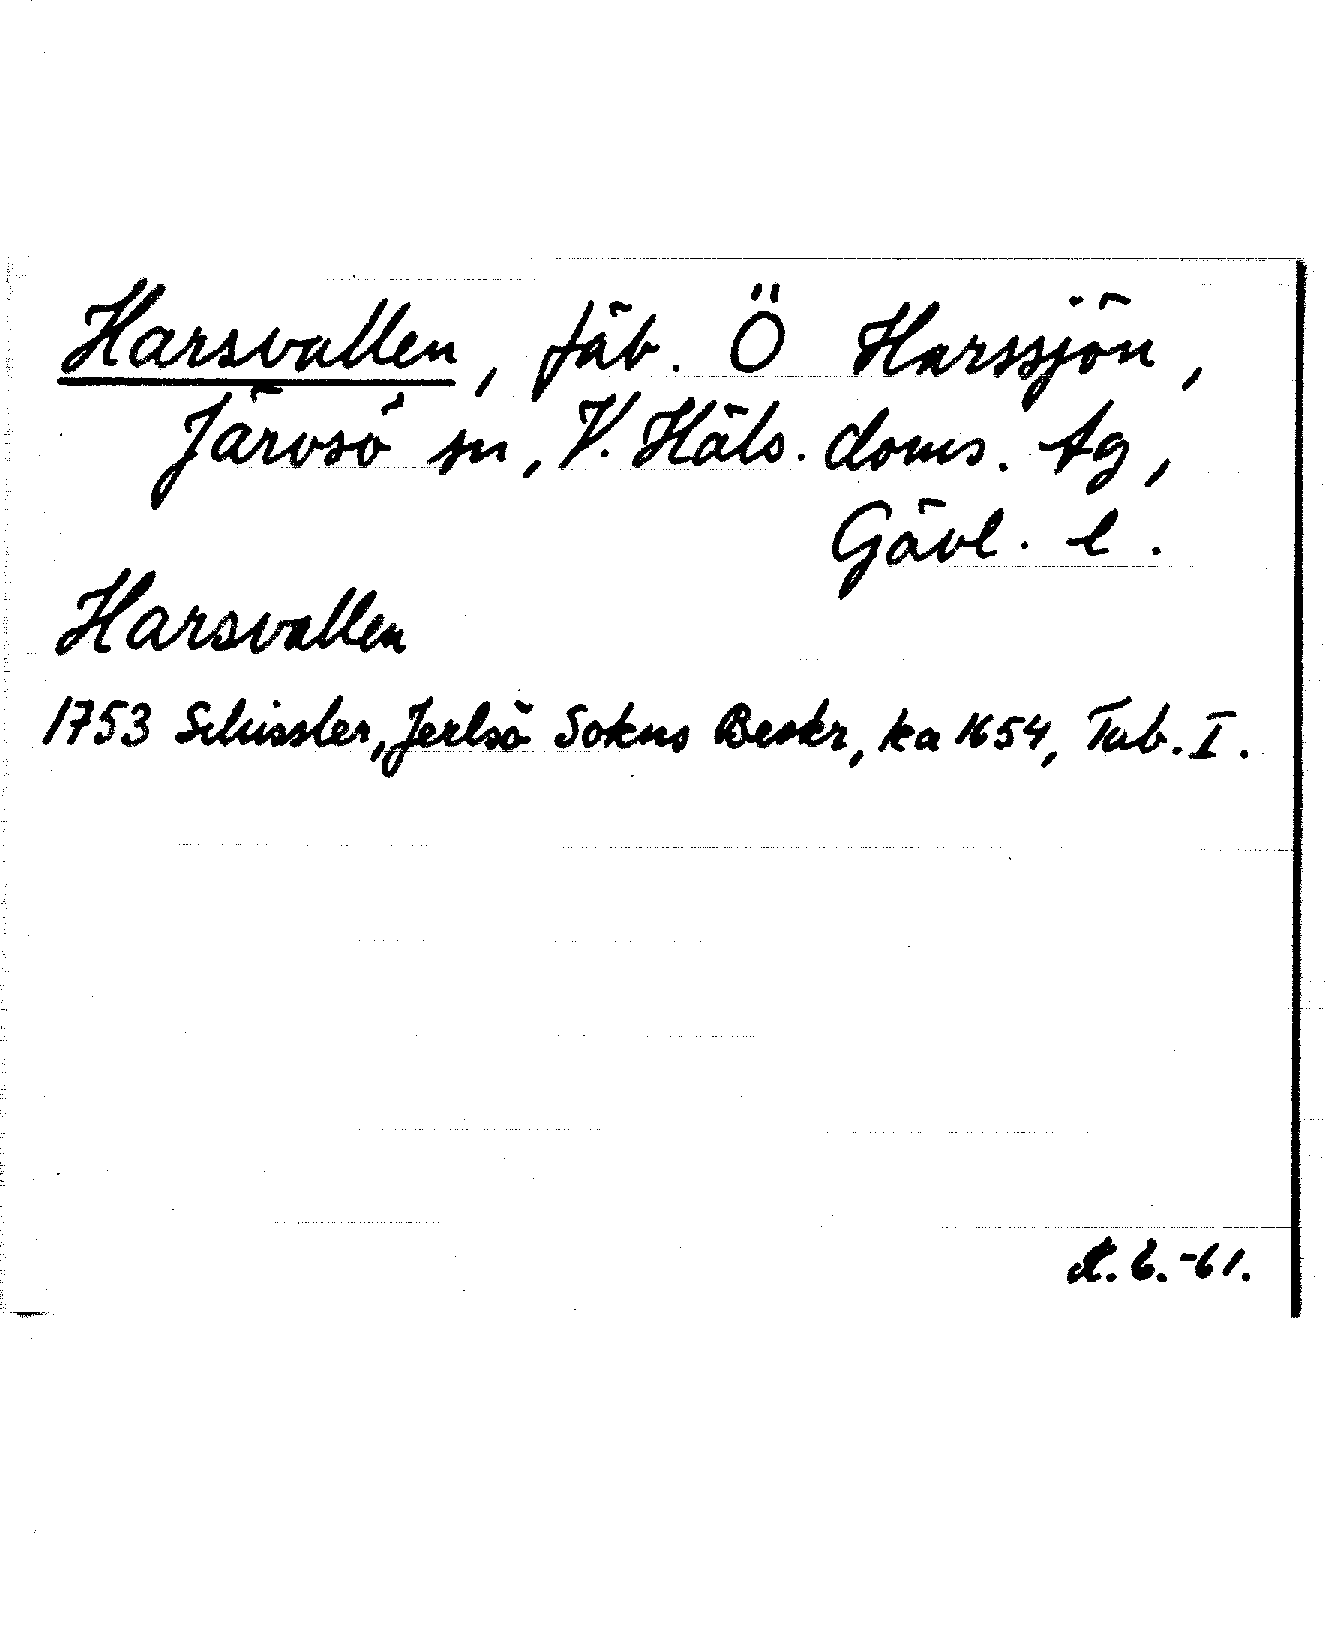 Harsvallen, fäb. Ö Harssjön,
Järvsö sn, V. Häls. doms. tg,
Gävl. l.
Harsvallen
1753 Schissler, Jerlsö Sokns Beskr, ka 1654, Tab. I.
6.-61.